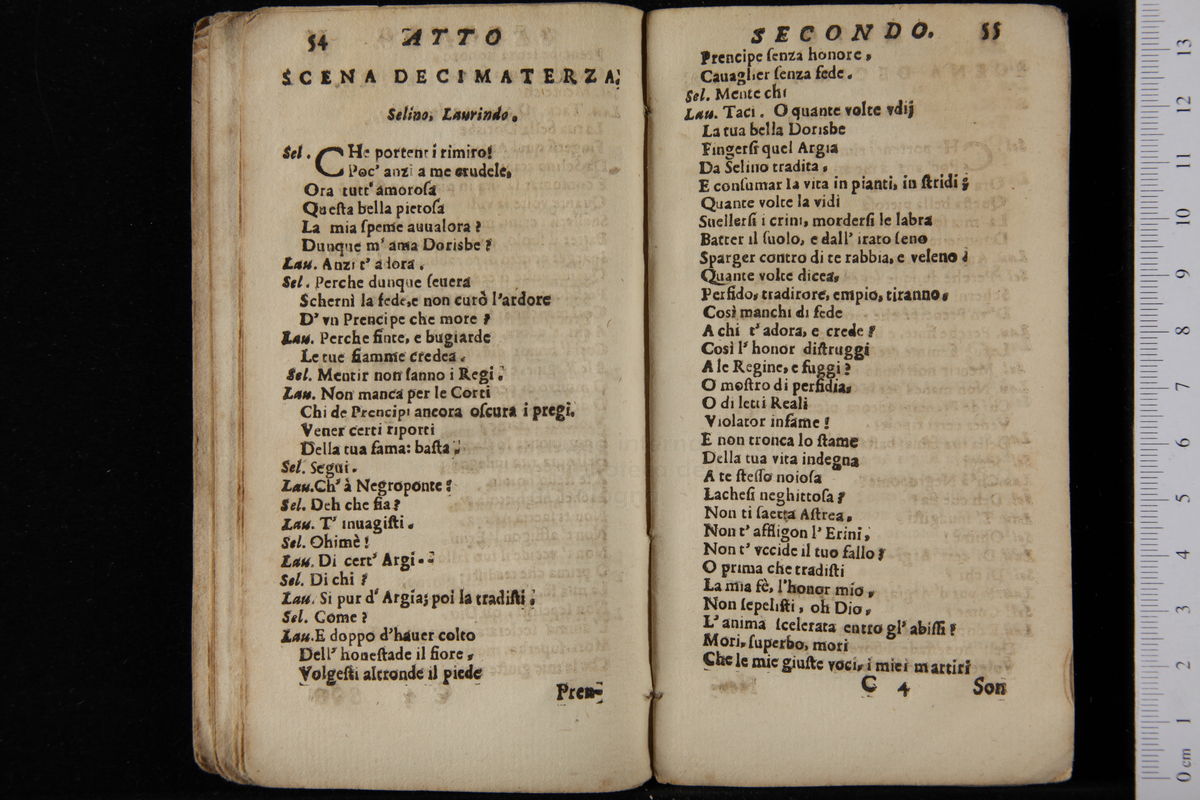 54 ATTO
SCENA DECIMATERZA.
Selino, Laurindo.
Sel. CHe portenti rimiro!
Poc' anzi a me crudele,
Ora tutt' amorosa
Questa bella pietosa
La mia speme auualora?
Dunque m' ama Dorisbe?
Lau. Anzi t' adora.
Sel. Perche dunque seuera
Schernì la fede, e non curò l'ardore
D' vn Prencipe che more?
Lau. Perche finte, e bugiarde
Le tue fiamme credea.
Sel. Mentir non sanno i Regi.
Lau. Non manca per le Corti
Chi de Prencipi ancora oscura i pregi.
Vener certi riporti
Della tua fama: basta.
Sel. Segui.
Lau. Ch' à Negroponte!
Sel. Deh che fia?
Lau. T' inuagisti.
Sel. Ohimè!
Lau. Di cert' Argi..
Sel. Di chi?
Lau. Si pur d' Argia; poi la tradisti.
Sel. Come?
Lau. E doppo d'hauer colto
Dell' honestade il fiore,
Volgesti altronde il piede
Pren-
SECONDO. 55
Prencipe senza honore,
Cauaglier senza fede.
Sel. Mente chi
Lau. Taci. O quante volte vdij
La tua bella Dorisbe
Fingersi quel Argia
Da Selino tradita,
E consumar la vita in pianti, in stridi;
Quante volte la vidi
Suellersi i crini, mordersi le labra
Batter il suolo, e dall' irato seno
Sparger contro di te rabbia, e veleno;
Quante volte dicea,
Perfido, tradirore, empio, tiranno,
Così manchi di fede
A chi t' adora, e crede?
Così l' honor distruggi
A le Regine, e fuggi?
O mostro di perfidia,
O di letti Reali
Violator infame!
E non tronca lo stame
Della tua vita indegna
A te stesso noiosa
Lachesi neghittosa?
Non ti saetta Astrea,
Non t' affligon l' Erini,
Non t' vccide il tuo fallo?
O prima che tradisti
La mia fè, l'honor mio,
Non sepelisti, oh Dio,
L' anima scelerata entro gl' abissi?
Mori, superbo, mori
Che le mie giuste voci, i miei martiri
C 4 Son
13
12
11
10
9
8
7
6
5
4
3
2
1
0 cm